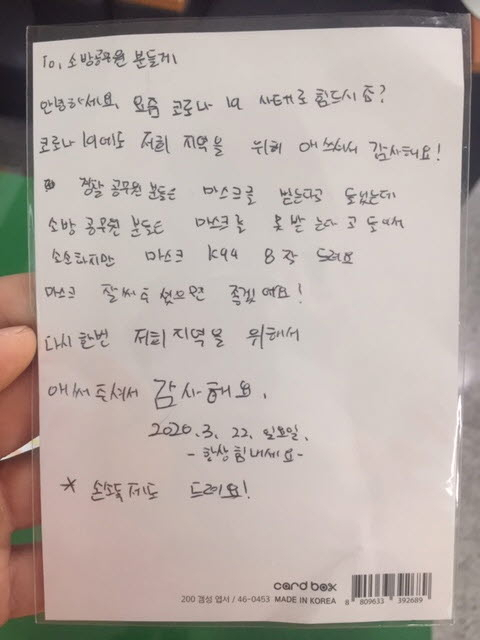 To, 소방공무원 분들게
안녕하세요, 요즘 코로나 19 사태로 힘드시죠?
코로나 19에도 저희 지역을 위해 애쓰셔서 감사해요!
경찰 공무원 분들은 마스크를 받는다고 들었는데
소방 공무원 분들은 마스크를 못 받는다고 들어서
소소하지만 마스크 K94 8장 드려요
마스크 잘 써주셨으면 좋겠에요!
다시 한번 저희 지역을 위해서
애써주셔서 감사해요.
2020.3. 22. 일요일.
-항상 힘내세요-
* 손소독제도 드려요!
cardbox
200 감성 엽서 / 46-0453 MADE IN KOREA
8 809633 392689